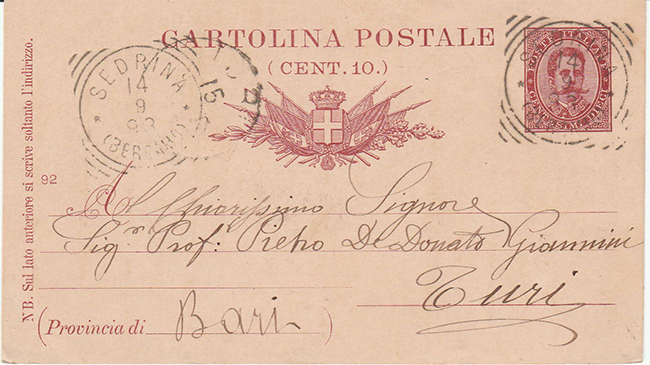 CARTOLINA POSTALE
(CENT. 10.)
SEDRINA
14
9
93
(BERGAMO)
15
POSTE ITALIANE
14
9
93
92
Al Chiarissimo Signore
Sigr Prof: Pietro De Donato Giannini
Turi
(Provincia di Bari )
NB. Sul lato anteriore si scrive soltanto l'indirizzo.